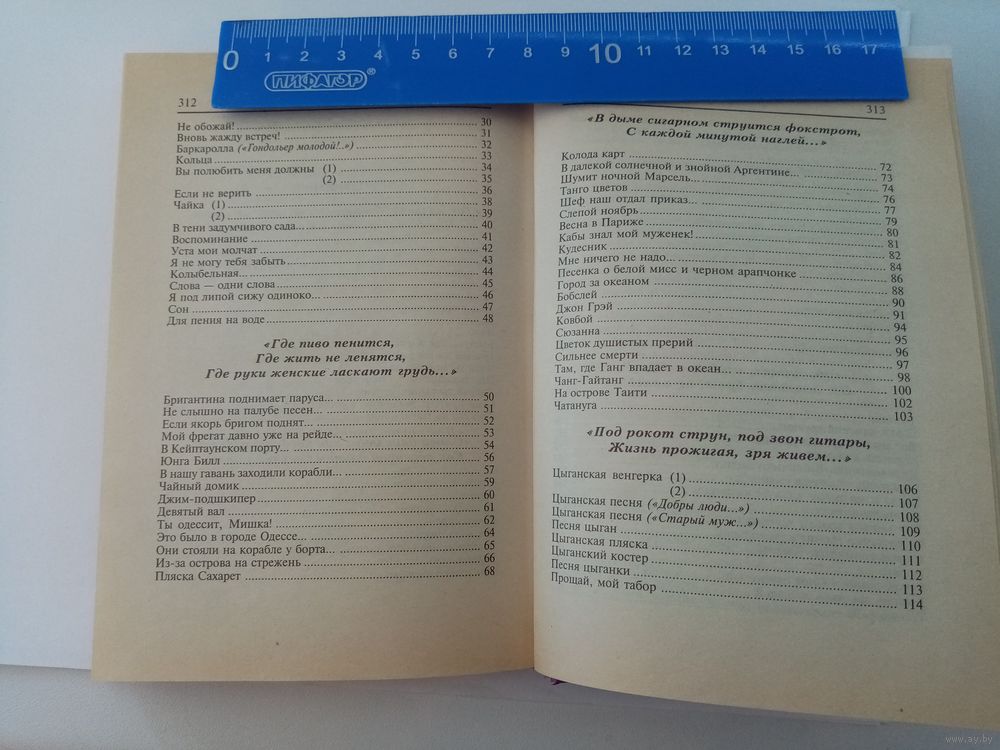 0 1 2 3 4 5 6 7 8 9 10 11 12 13 14 15 16 17
ПИФАГОР®
312
Не обожай! 30
Вновь жажду встреч! 31
Баркаролла («Гондольер молодой!..») 32
Кольца 33
Вы полюбить меня должны (1) 34
(2) 35
Если не верить 36
Чайка (1) 38
(2) 39
В тени задумчивого сада... 40
Воспоминание 41
Уста мои молчат 42
Я не могу тебя забыть 43
Колыбельная... 44
Слова — одни слова 45
Я под липой сижу одиноко... 46
Сон 47
Для пения на воде 48
«Где пиво пенится,
Где жить не ленятся,
Где руки женские ласкают грудь...»
Бригантина поднимает паруса... 50
Не слышно на палубе песен... 51
Если якорь бригом поднят... 52
Мой фрегат давно уже на рейде... 53
В Кейптаунском порту... 54
Юнга Билл 56
В нашу гавань заходили корабли... 57
Чайный домик 59
Джим-подшкипер 60
Девятый вал 61
Ты одессит, Мишка! 62
Это было в городе Одессе... 64
Они стояли на корабле у борта... 65
Из-за острова на стрежень 66
Пляска Сахарет 68
313
«В дыме сигарном струится фокстрот,
С каждой минутой наглей...»
Колода карт 72
В далекой солнечной и знойной Аргентине... 73
Шумит ночной Марсель... 74
Танго цветов 76
Шеф наш отдал приказ... 77
Слепой ноябрь 79
Весна в Париже 80
Кабы знал мой муженек! 81
Кудесник 82
Мне ничего не надо... 84
Песенка о белой мисс и черном арапчонке 86
Город за океаном 88
Бобслей 90
Джон Грэй 91
Ковбой 94
Сюзанна 95
Цветок душистых прерий 96
Сильнее смерти 97
Там, где Ганг впадает в океан... 98
Чанг-Гайтанг 100
На острове Таити 102
Чатануга 103
«Под рокот струн, под звон гитары,
Жизнь прожигая, зря живем...»
Цыганская венгерка (1) 106
(2) 107
Цыганская песня («Добры люди...») 108
Цыганская песня («Старый муж...») 109
Песня цыган 110
Цыганская пляска 111
Цыганский костер 112
Песня цыганки 113
Прощай, мой табор 114
www.ay.by